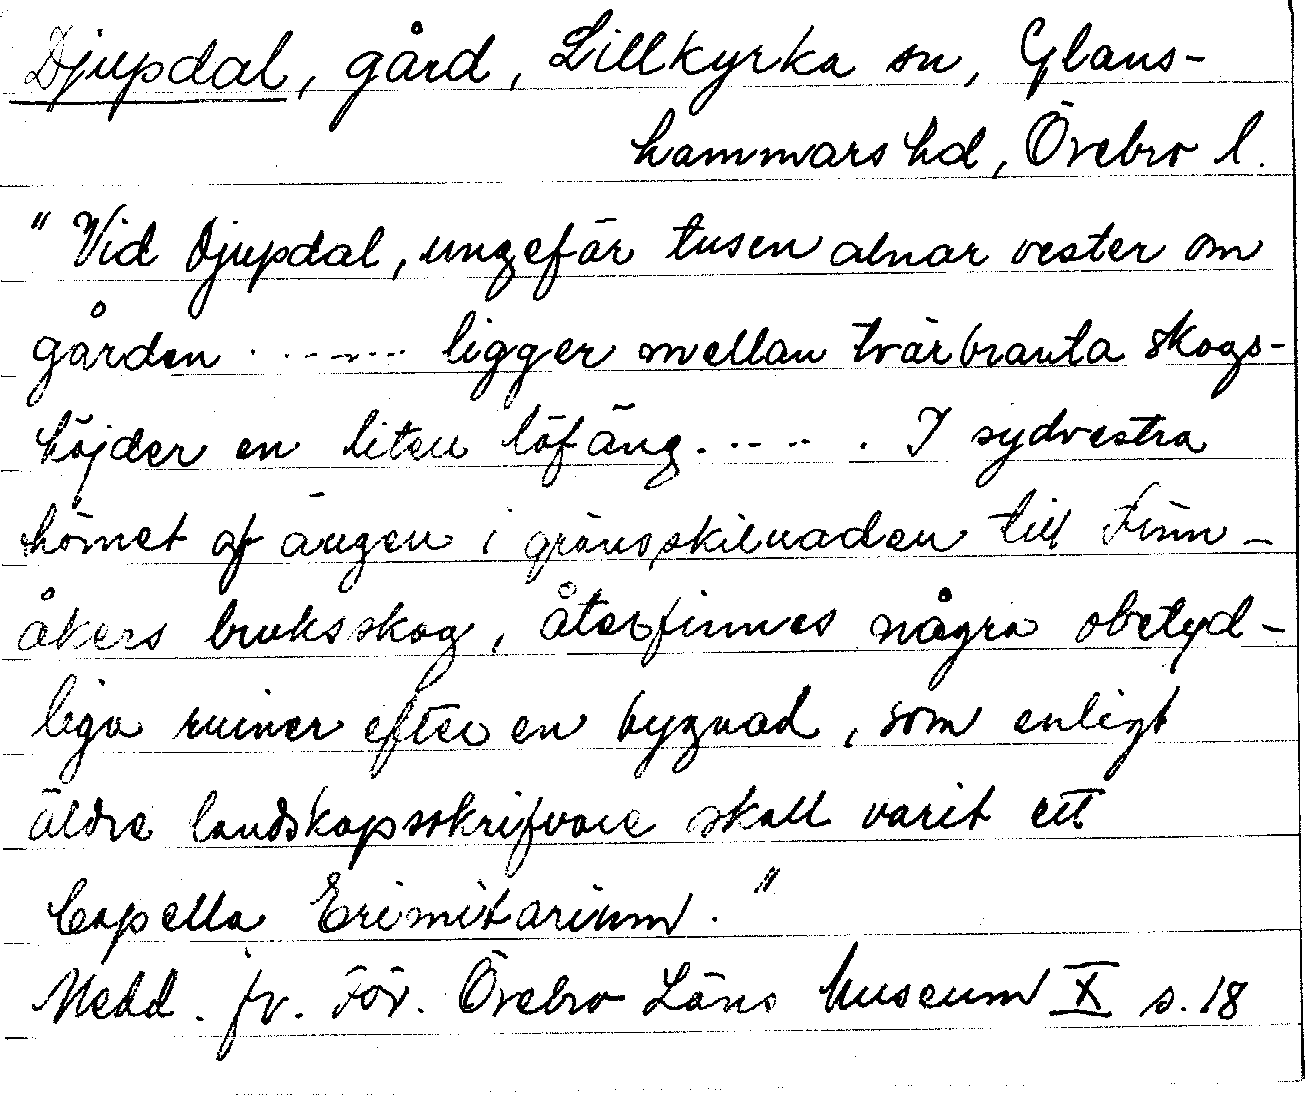 Djupdal, gård, Lillkyrka sn, Glans-
hammars hd, Örebro l.
"Vid Djupdal, ungefär tusen alnar vester om
gården . . . . . . . ligger mellan tvärbranta skogs-
höjder en liten löfäng. . . . . . I sydvestra
hörnet af ängen i gränsskilnaden till Finn-
åkers bruksskog, återfinnes några obetyd-
liga ruiner efter en bygnad, som enligt
äldre landskapsskrifvare skall varit ett
Capella Erimitarium."
Medd. fr. För. Örebro Läns Museum X s. 18